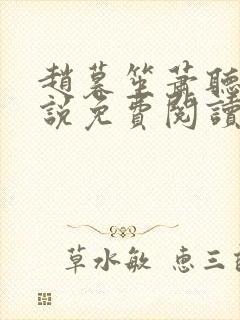 趙暮笙蕭聽
說免費閱讀
草水敏 惠三